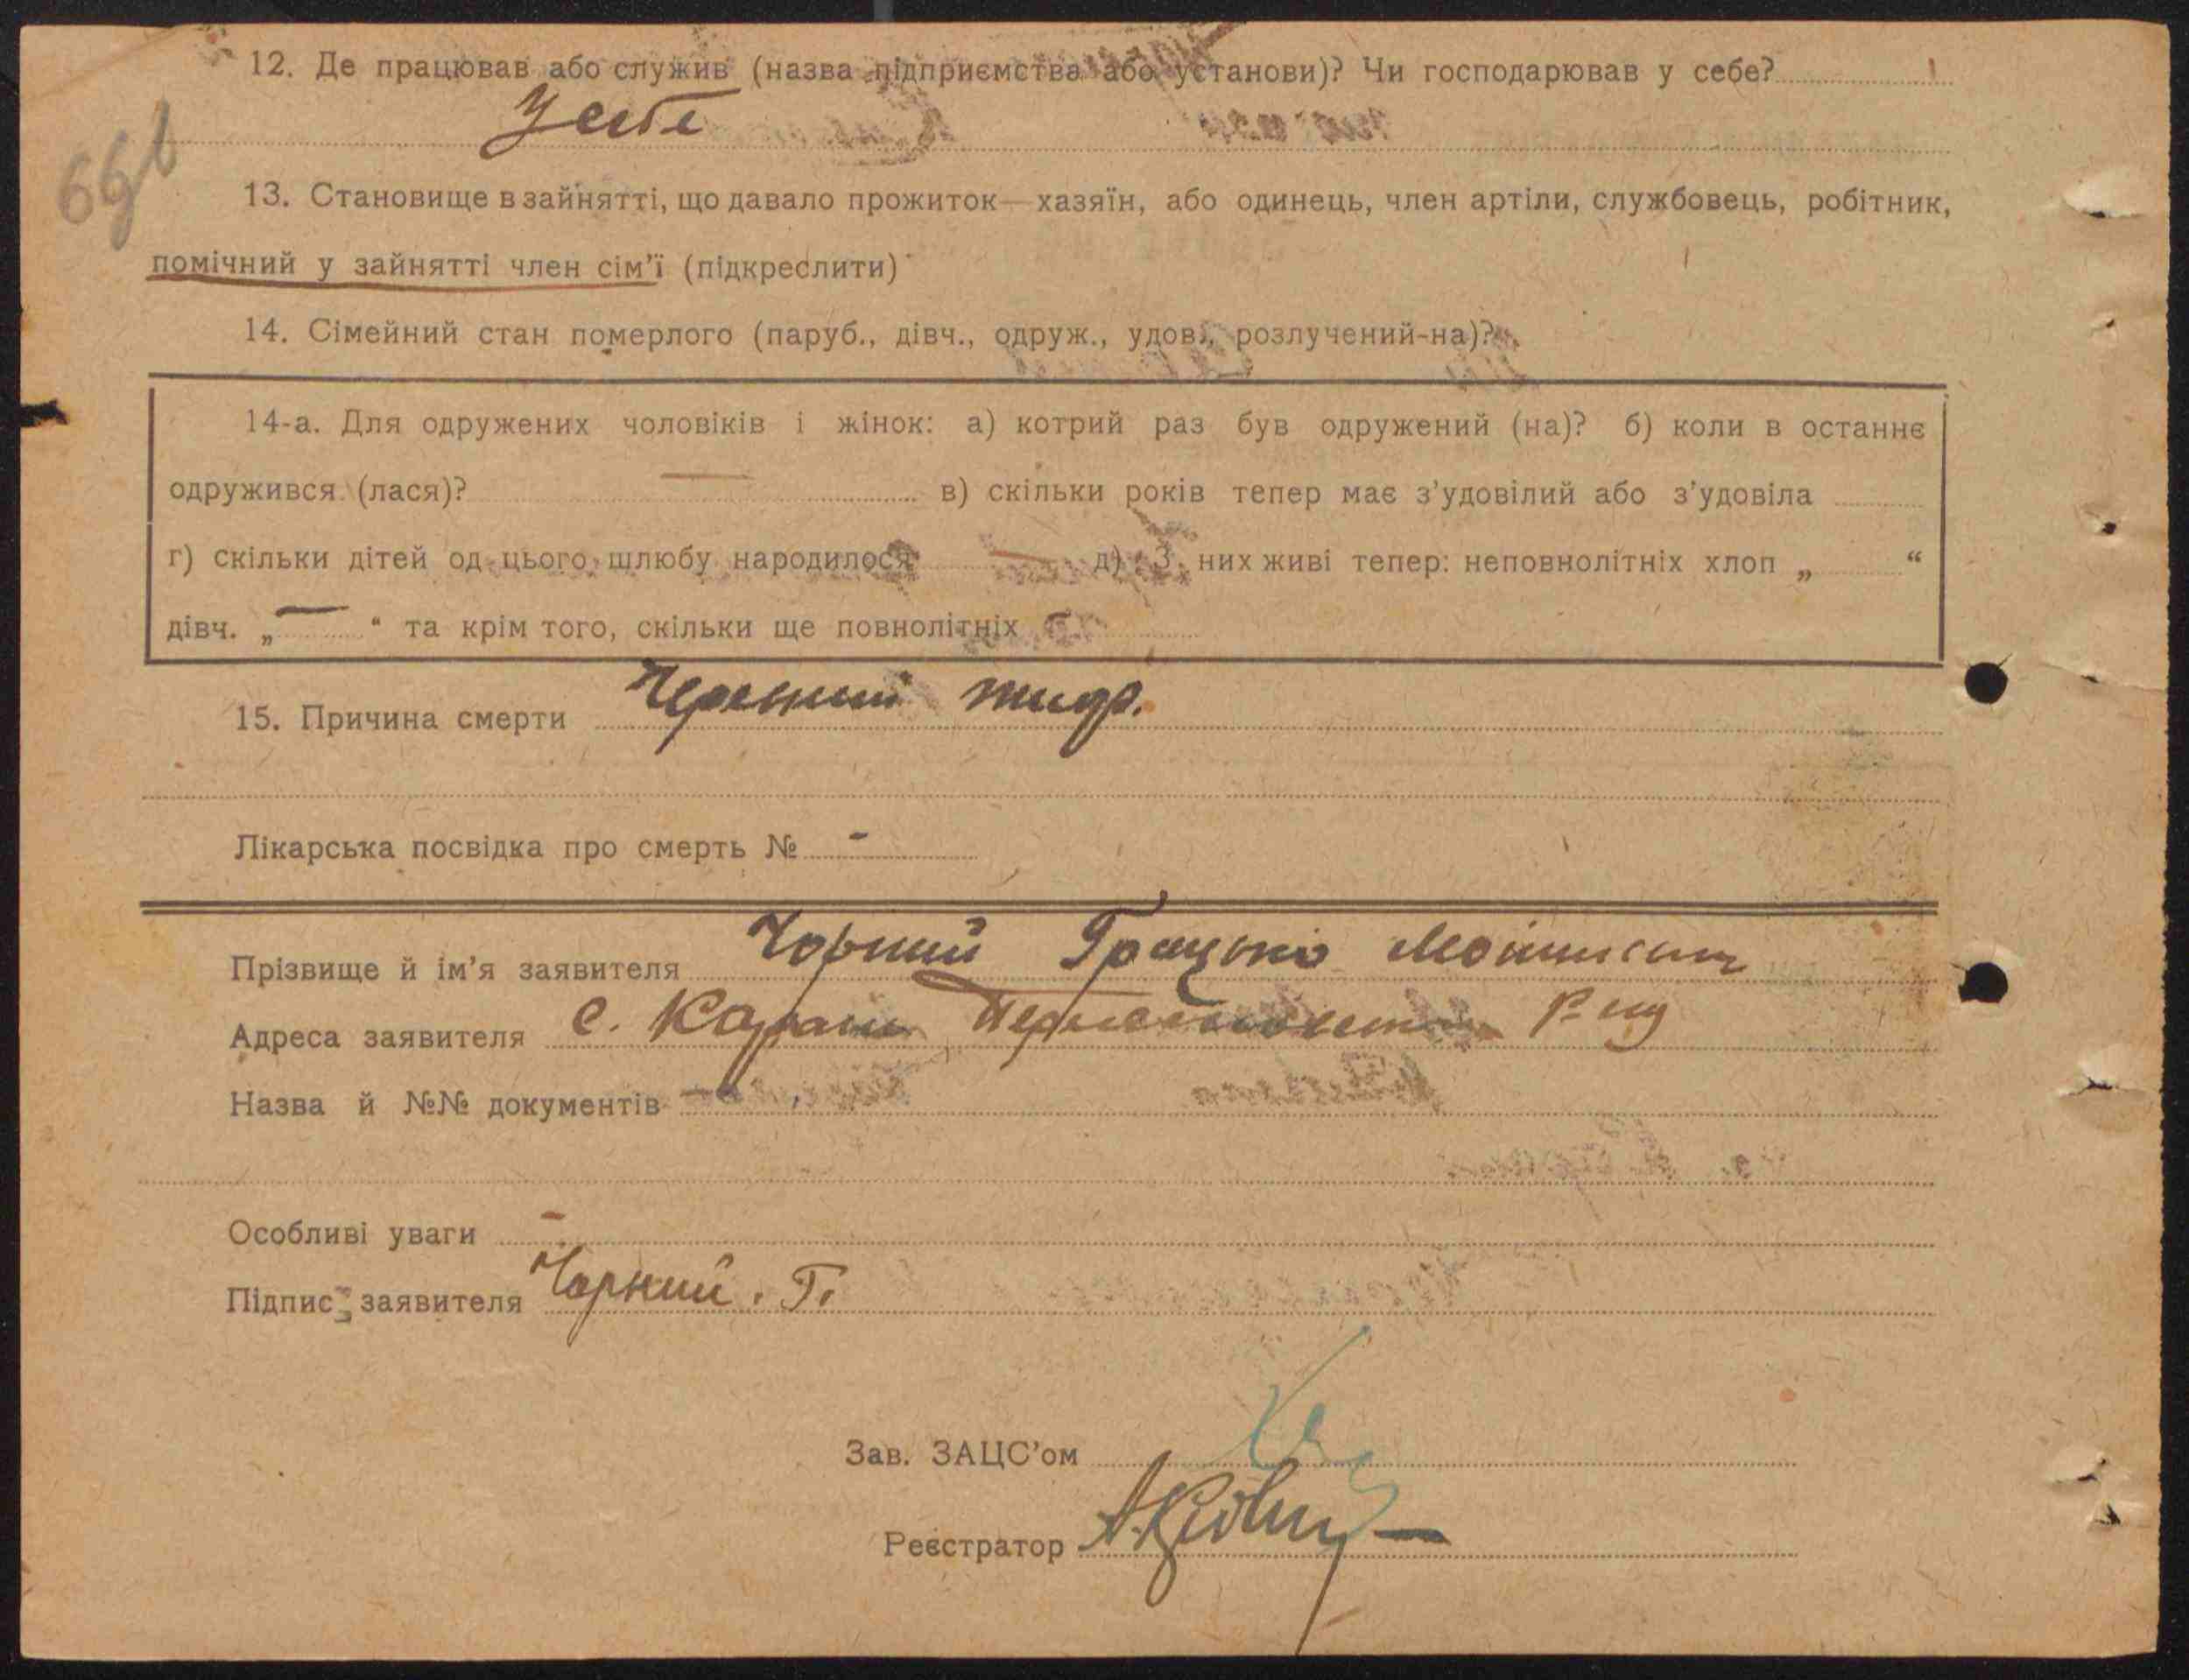 12. Де працював або служив (назва підприємства або установи)? Чи господарював у себе?
У себе
66
13. Становище в зайнятті, що давало прожиток—хазяїн, або одинець, член артіли, службовець, робітник,
помічний у зайнятті член сім'ї (підкреслити)
14. Сімейний стан померлого (паруб., дівч., одруж., удов., розлучений-на)?
14-а. Для одружених чоловіків і жінок: а) котрий раз був одружений (на)? б) коли в останнє
одружився (лася)? — в) скільки років тепер має з'удовілий або з'удовіла
г) скільки дітей од цього шлюбу народилося — д) З них живі тепер: неповнолітніх хлоп „ “
дівч. „ — “ та крім того, скільки ще повнолітніх
15. Причина смерти Черевний тиф.
Лікарська посвідка про смерть № -
Прізвище й ім'я заявителя Чорний Грицько
Адреса заявителя с. Карань Р-ну
Назва й №№ документів —
Особливі уваги —
Підпис заявителя Чорний. Г.
Зав. ЗАЦС'ом
Реєстратор